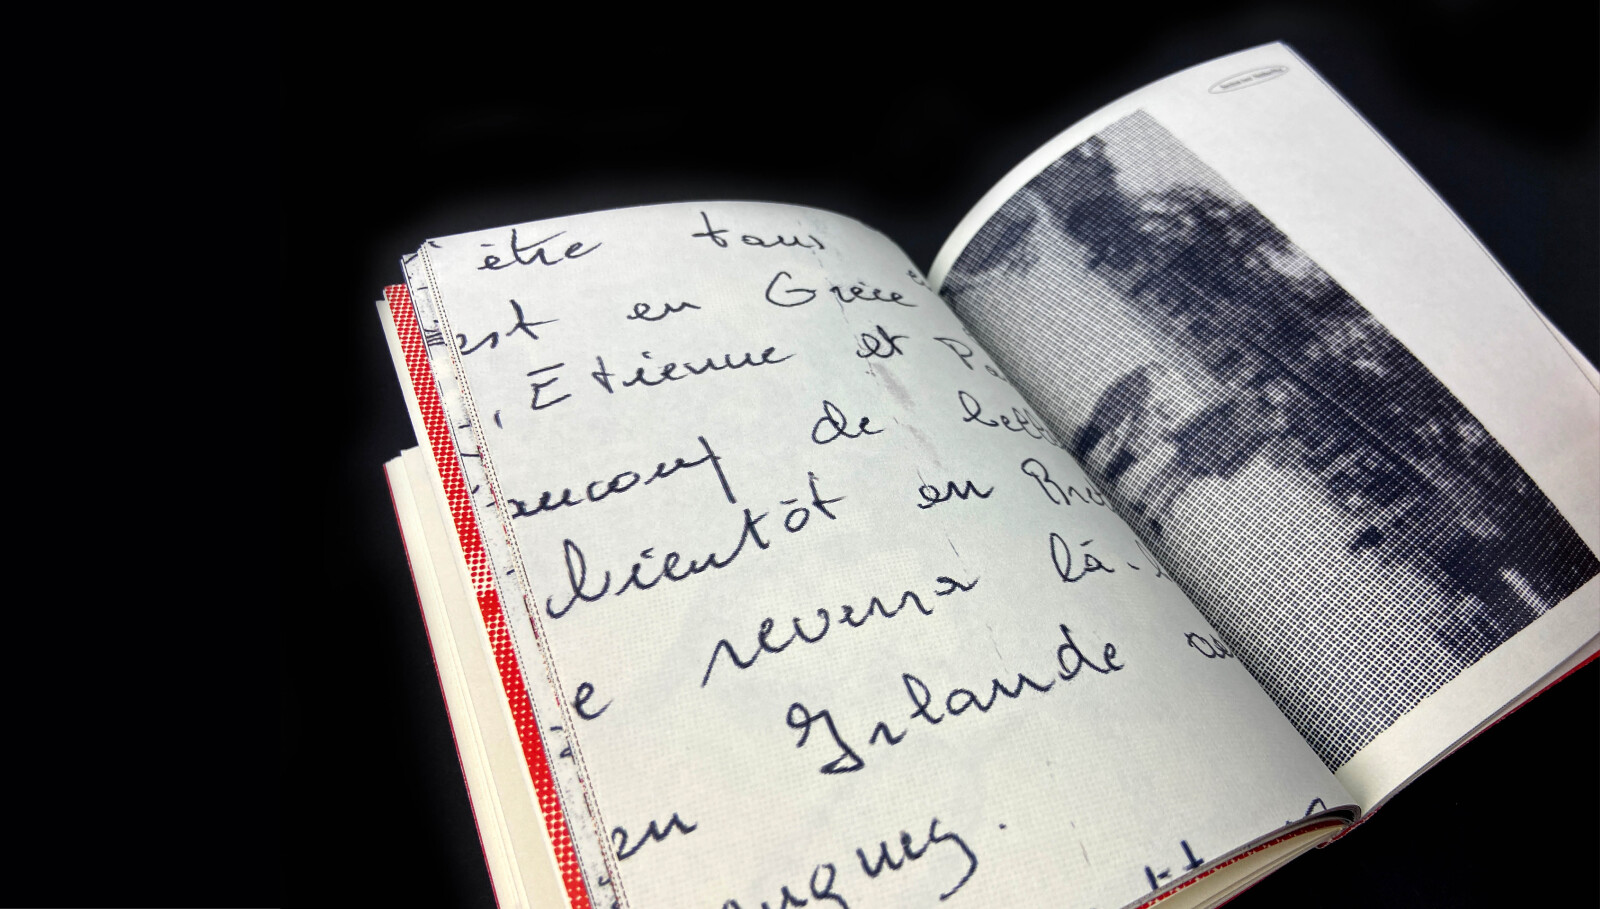 être tous
est en Grèce
, Etienne et Pa
aucoup de lett
bientôt en Bro
e reverra là-
Irlande au
en